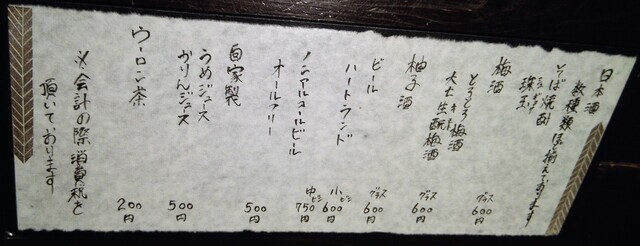 日本酒
数種類ほど揃えております
そば焼酎
珠玉
梅酒
とろとろ梅酒
グラス
600円
大七生酛梅酒
グラス
600円
柚子酒
グラス
600円
ビール
ハートランド
小ビン
600円
中ビン
750円
ノンアルコールビール
オールフリー
500円
自家製
うめジュース
かりんジュース
500円
ウーロン茶
200円
※会計の際消費税を
頂いております